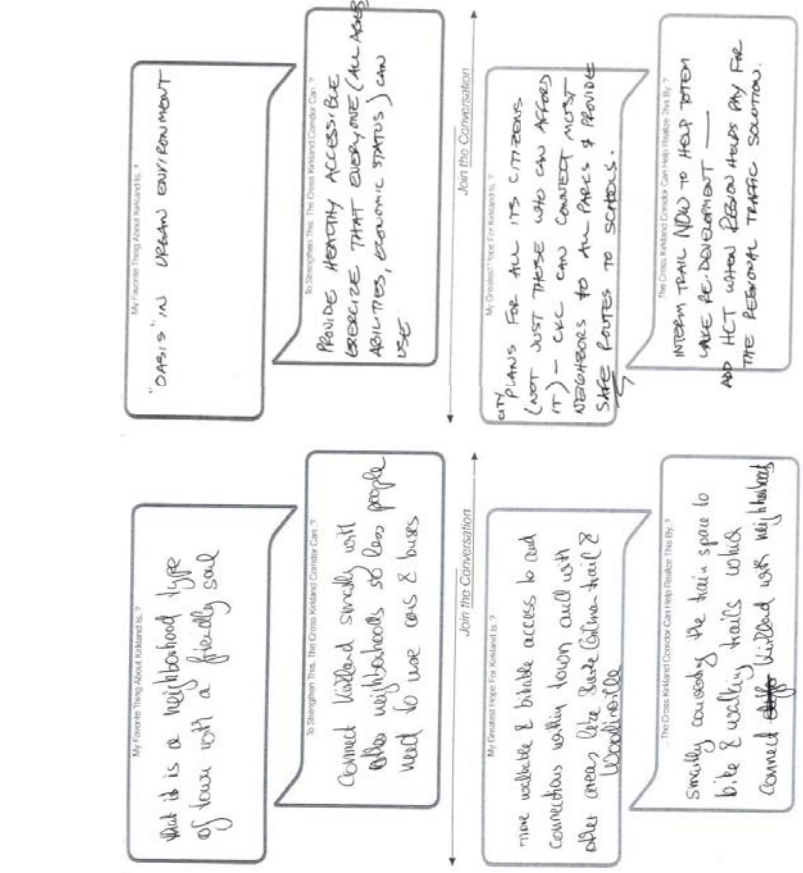 My Favorite Thing About Kirkland Is..?
that it is a neighborhood type
of town with a friendly soul
To Strengthen This, The Cross Kirkland Corridor Can..?
Connect Kirkland smartly with
other neighborhoods so less people
need to use cars & buses
Join the Conversation
My Greatest Hope For Kirkland Is..?
more walkable & bikable access to and
connections within town and with
other areas like Burke Gilman trail &
Woodinville
...The Cross Kirkland Corridor Can Help Realize This By..?
smartly converting the train space to
bike & walking trails which
connect Kirkland with neighborhoods
My Favorite Thing About Kirkland Is..?
"OASIS" IN URBAN ENVIRONMENT
To Strengthen This, The Cross Kirkland Corridor Can..?
PROVIDE HEALTHY ACCESSIBLE
EXERCIZE THAT EVERYONE (ALL AGES
ABILITIES, ECONOMIC STATUS) CAN
USE
Join the Conversation
My Greatest Hope For Kirkland Is..?
CITY PLANS FOR ALL ITS CITIZENS
(NOT JUST THOSE WHO CAN AFFORD
IT) - CKC CAN CONNECT MOST
NEIGHBORS TO ALL PARKS & PROVIDE
SAFE ROUTES TO SCHOOLS.
...The Cross Kirkland Corridor Can Help Realize This By..?
INTERIM TRAIL NOW TO HELP TOTEM
LAKE RE-DEVELOPMENT —
ADD HCT WHEN REGION HELPS PAY FOR
THE REGIONAL TRAFFIC SOLUTION.